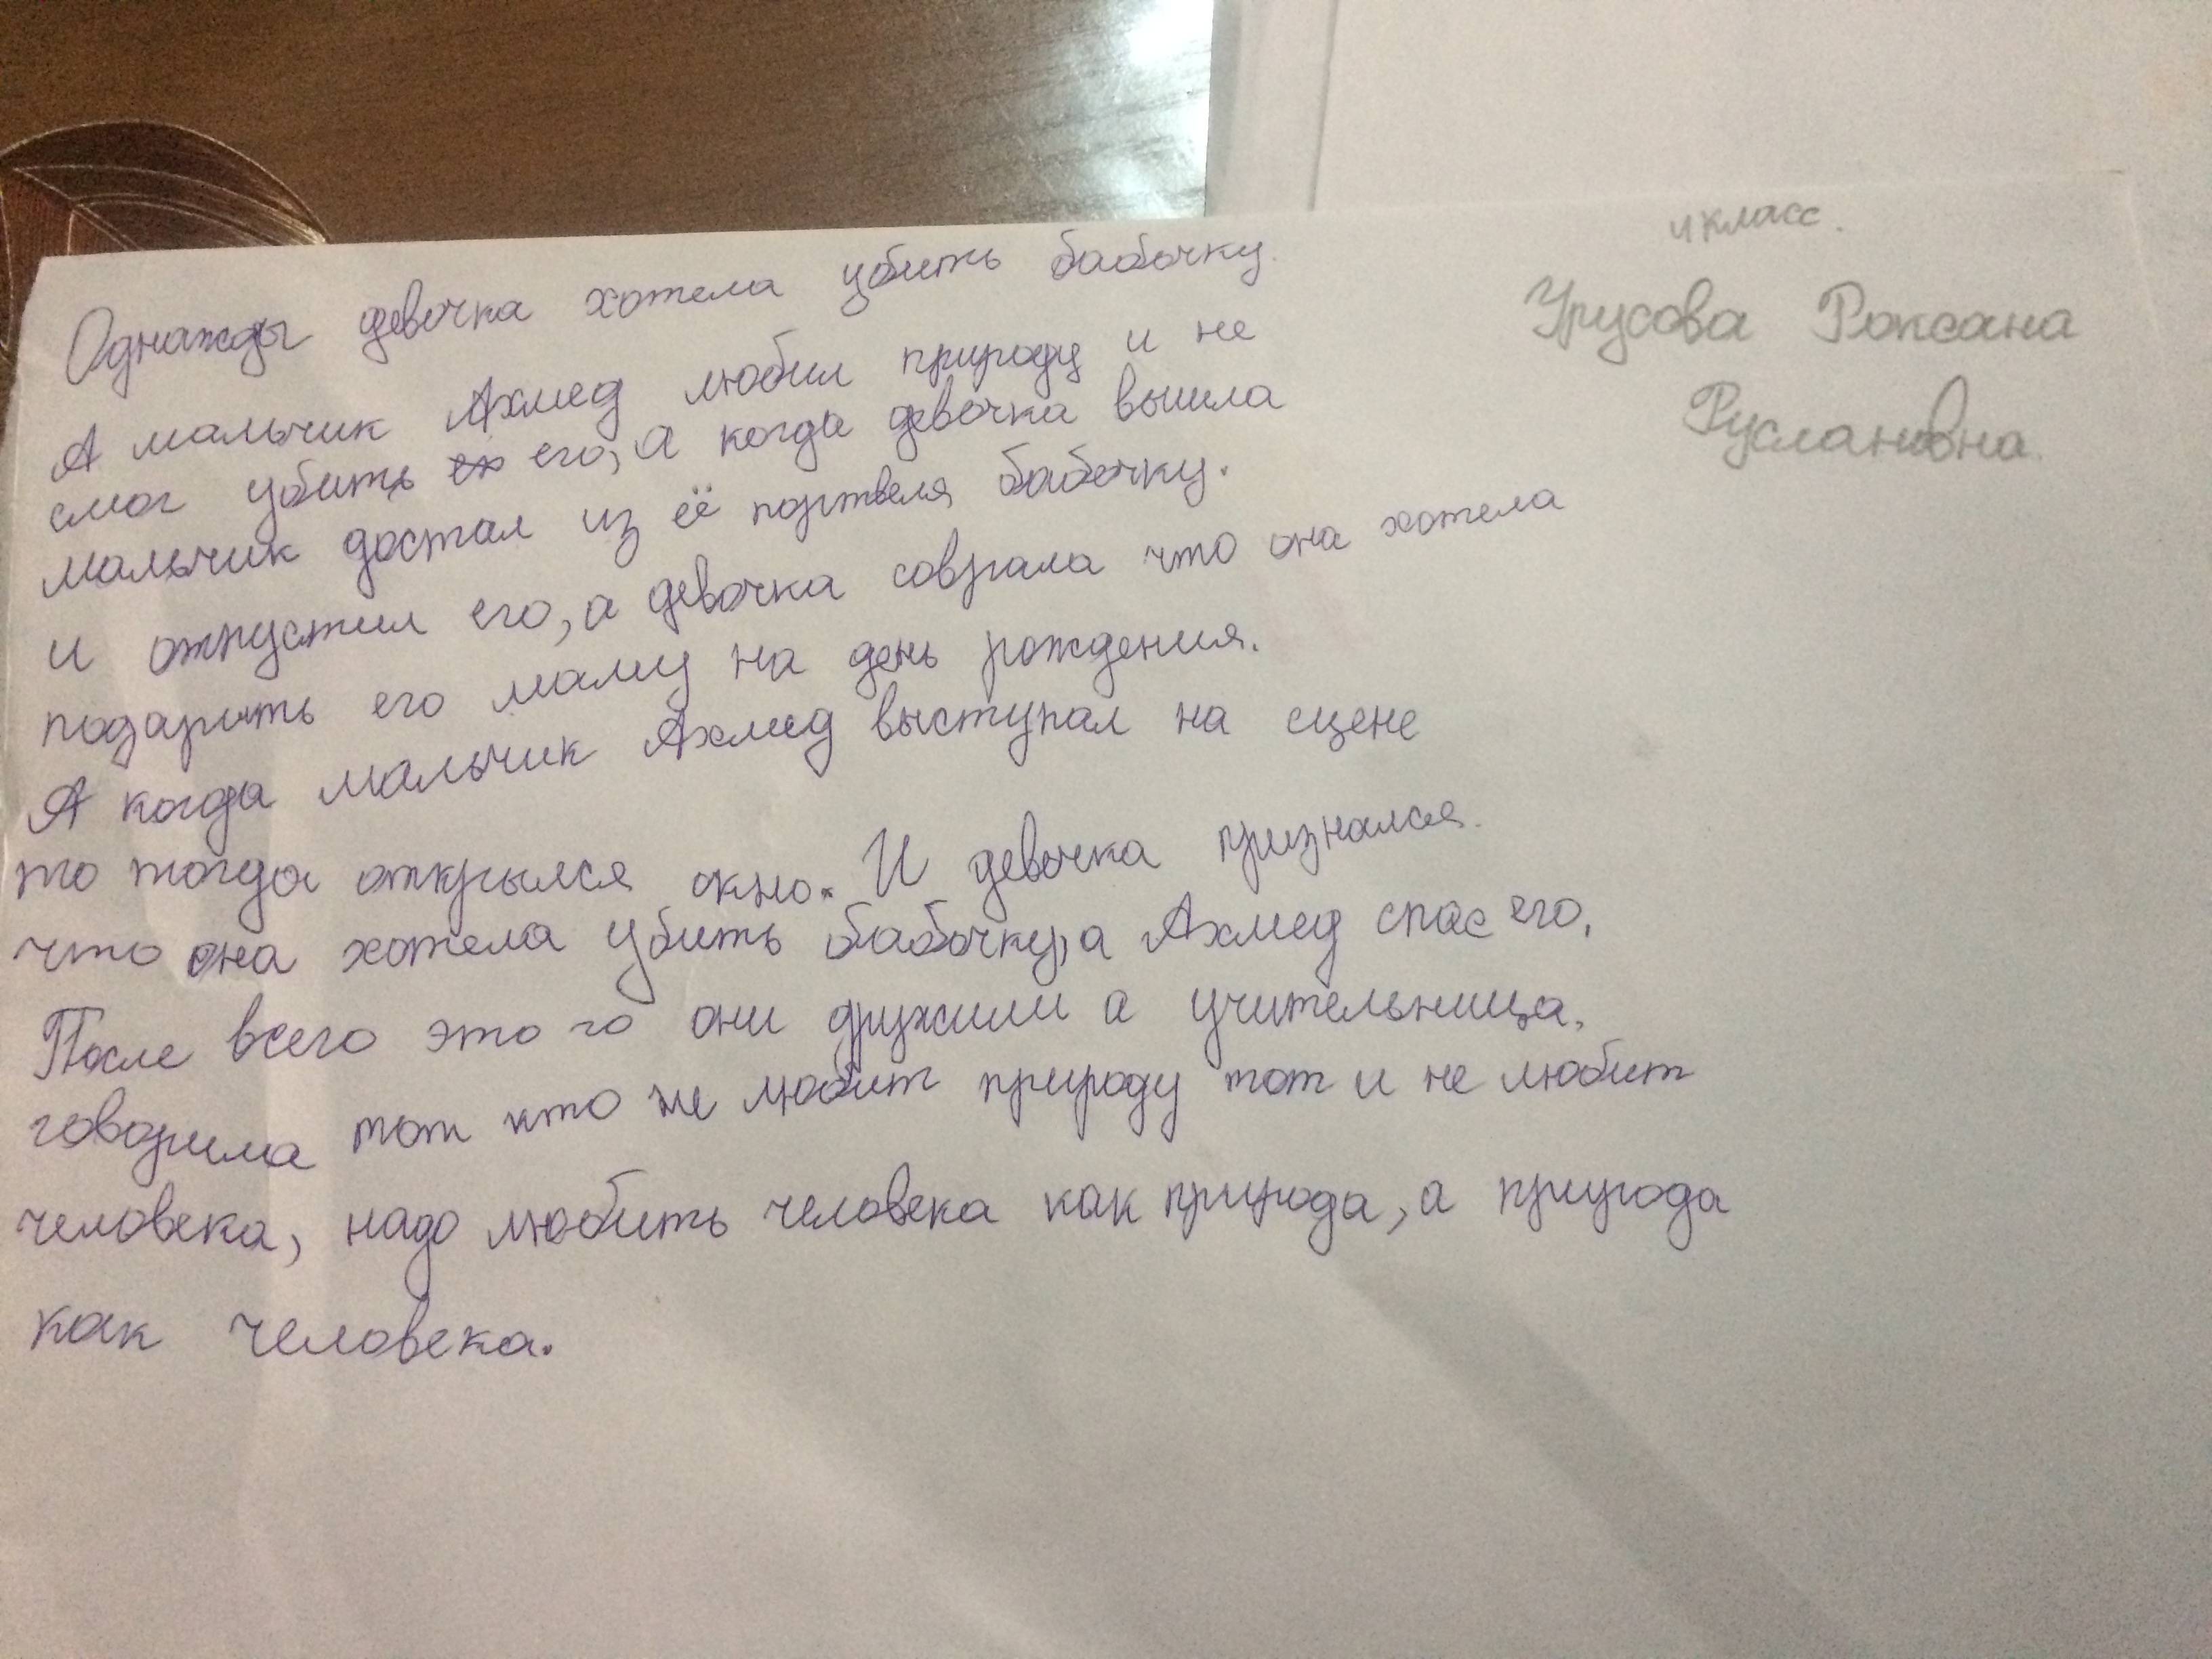 4 класс.
Урусова Роксана
Руслановна.
Однажды девочка хотела убить бабочку.
А мальчик Ахмед любил природу и не
смог убить его, а когда девочка вышла
мальчик достал из её портвеля бабочку.
и отпустил его, а девочка соврала что она хотела
подарить его маму на день рождения.
А когда мальчик Ахмед выступал на сцене
то тогда открылся окно. И девочка признался.
что она хотела убить бабочку, а Ахмед спас его.
После всего этого они дружили а учительница.
говорила тот кто не любит природу тот и не любит
человека, надо любить человека как природа, а природа
как человека.